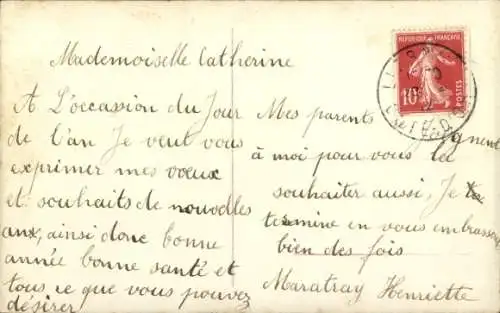 Mademoiselle Catherine
A L'occasion du Jour
de l'an Je veut vous
exprimer mes voeux
et souhaits de nouvelles
ans, ainsi donc bonne
année bonne santé et
tous ce que vous pouvez
désirer
Mes parents
à moi pour vous les
souhaiter aussi, Je
termine en vous embrassant
bien des fois
Maratray Henriette
REPUBLIQUE FRANÇAISE
10
POSTES